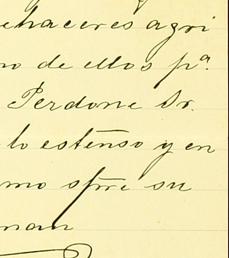 ehaceres agri
no de ellos pª.
Perdone Sr.
lo estenso y en
mo spre su
man